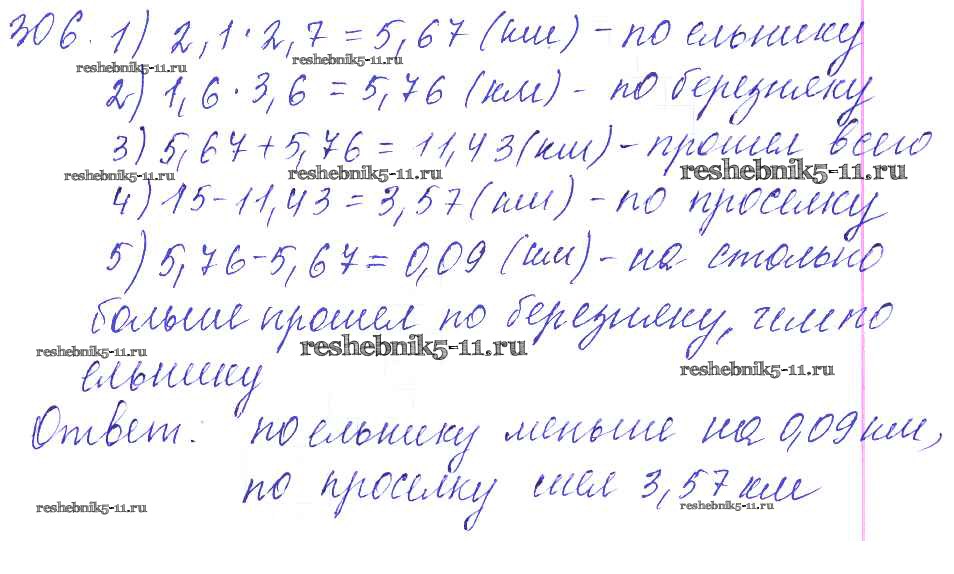 306. 1) 2,1 · 2,7 = 5,67 (км) - по ельнику
reshebnik5-11.ru reshebnik5-11.ru
2) 1,6 · 3,6 = 5,76 (км) - по березняку
3) 5,67 + 5,76 = 11,43 (км) - прошел всего
reshebnik5-11.ru reshebnik5-11.ru reshebnik5-11.ru
4) 15 - 11,43 = 3,57 (км) - по проселку
5) 5,76 - 5,67 = 0,09 (км) - на столько
больше прошел по березняку, чем по
reshebnik5-11.ru reshebnik5-11.ru reshebnik5-11.ru
ельнику
Ответ: по ельнику меньше на 0,09 км,
по проселку шел 3,57 км
reshebnik5-11.ru reshebnik5-11.ru